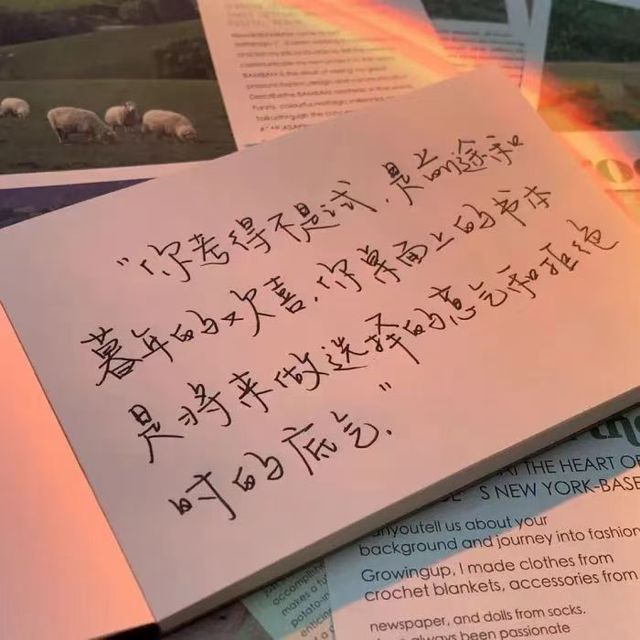 "你考得不是试,是前途和
暮年的欢喜.你桌面上的书本
是将来做选择的意气和拒绝
时的底气."
THE HEART OF
S NEW YORK-BASE
anyoutell us about your
background and journey into fashion
Growingup, I made clothes from
crochet blankets, accessories from
newspaper, and dolls from socks.
always been passionate